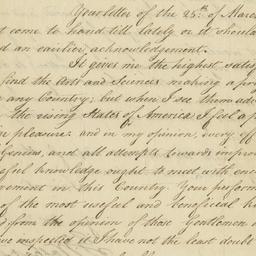 Your letter of the 25th of Marc
t come to hand till lately or it shoul
d an earlier acknowledgement.
It gives me the highest satis
find the Arts and Sciences making a pro
any Country; but when I see them adv
the rising States of America I feel a p
pleasure and in my opinion, every eff
Genius, and all attempts towards impro
eful knowledge ought to meet with enc
ement in this Country. Your perform
of the most useful and beneficial k
d from the opinion of those Gentlemen
ve inspected it I have not the least doubt